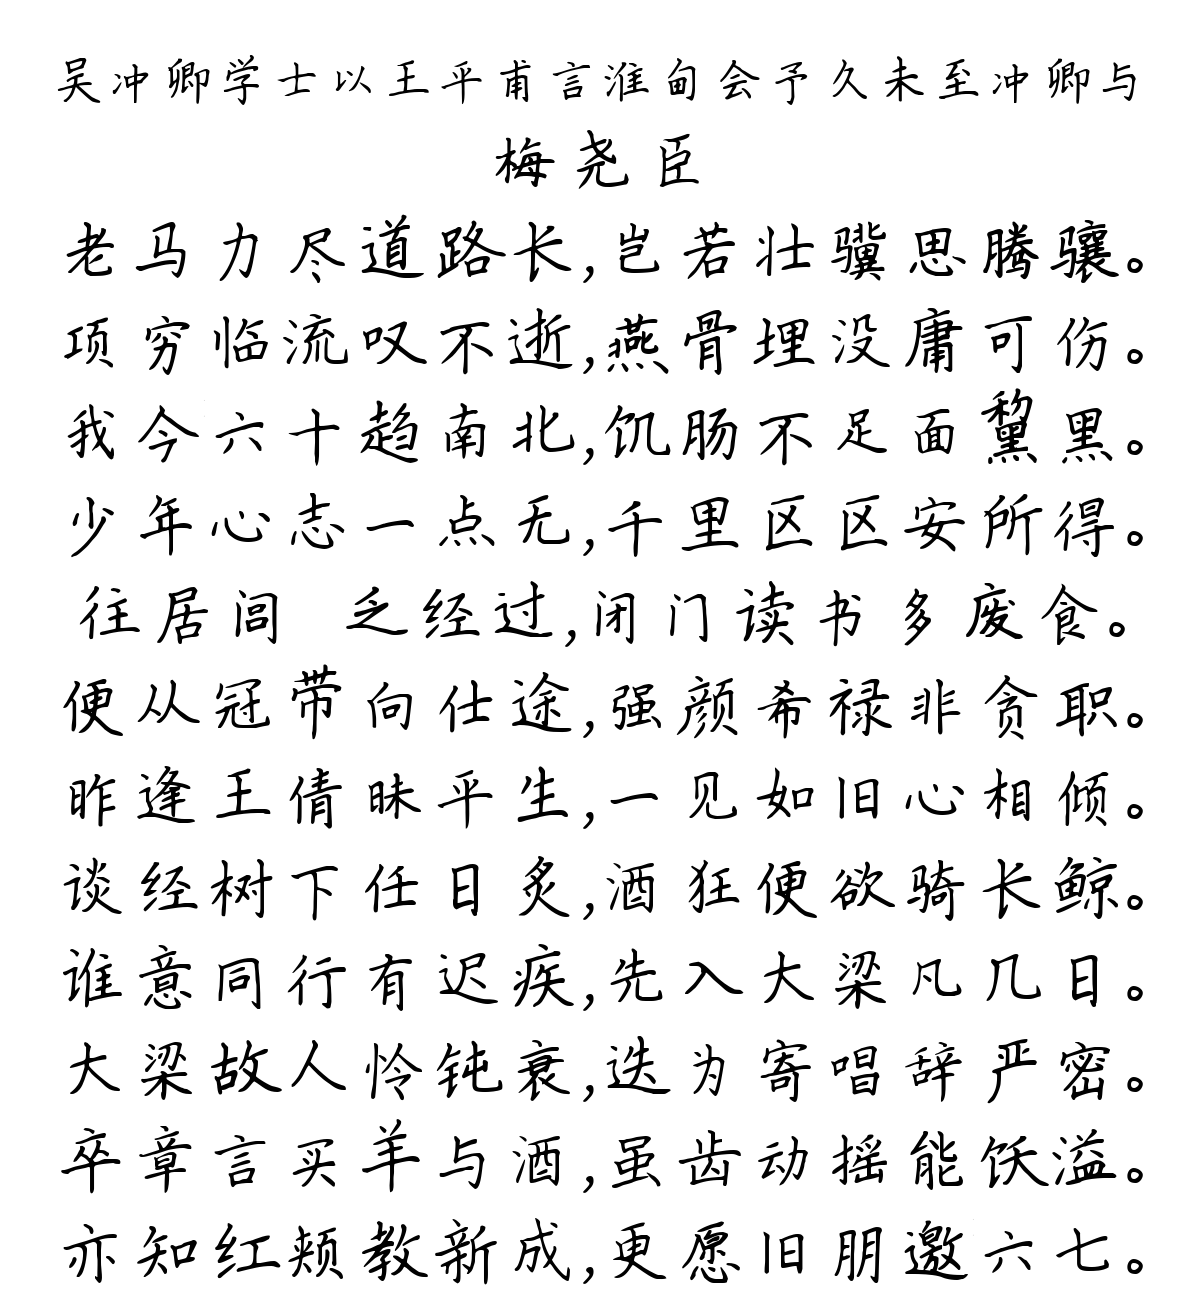 吴冲卿学士以王平甫言淮甸会予久未至冲卿与
梅尧臣
老马力尽道路长,岂若壮骥思腾骧。
项穷临流叹不逝,燕骨埋没庸可伤。
我今六十趋南北,饥肠不足面黧黑。
少年心志一点无,千里区区安所得。
往居闾 乏经过,闭门读书多废食。
便从冠带向仕途,强颜希禄非贪职。
昨逢王倩昧平生,一见如旧心相倾。
谈经树下任日炙,酒狂便欲骑长鲸。
谁意同行有迟疾,先入大梁凡几日。
大梁故人怜钝衰,迭为寄唱辞严密。
卒章言买羊与酒,虽齿动摇能饫溢。
亦知红颊教新成,更愿旧朋邀六七。